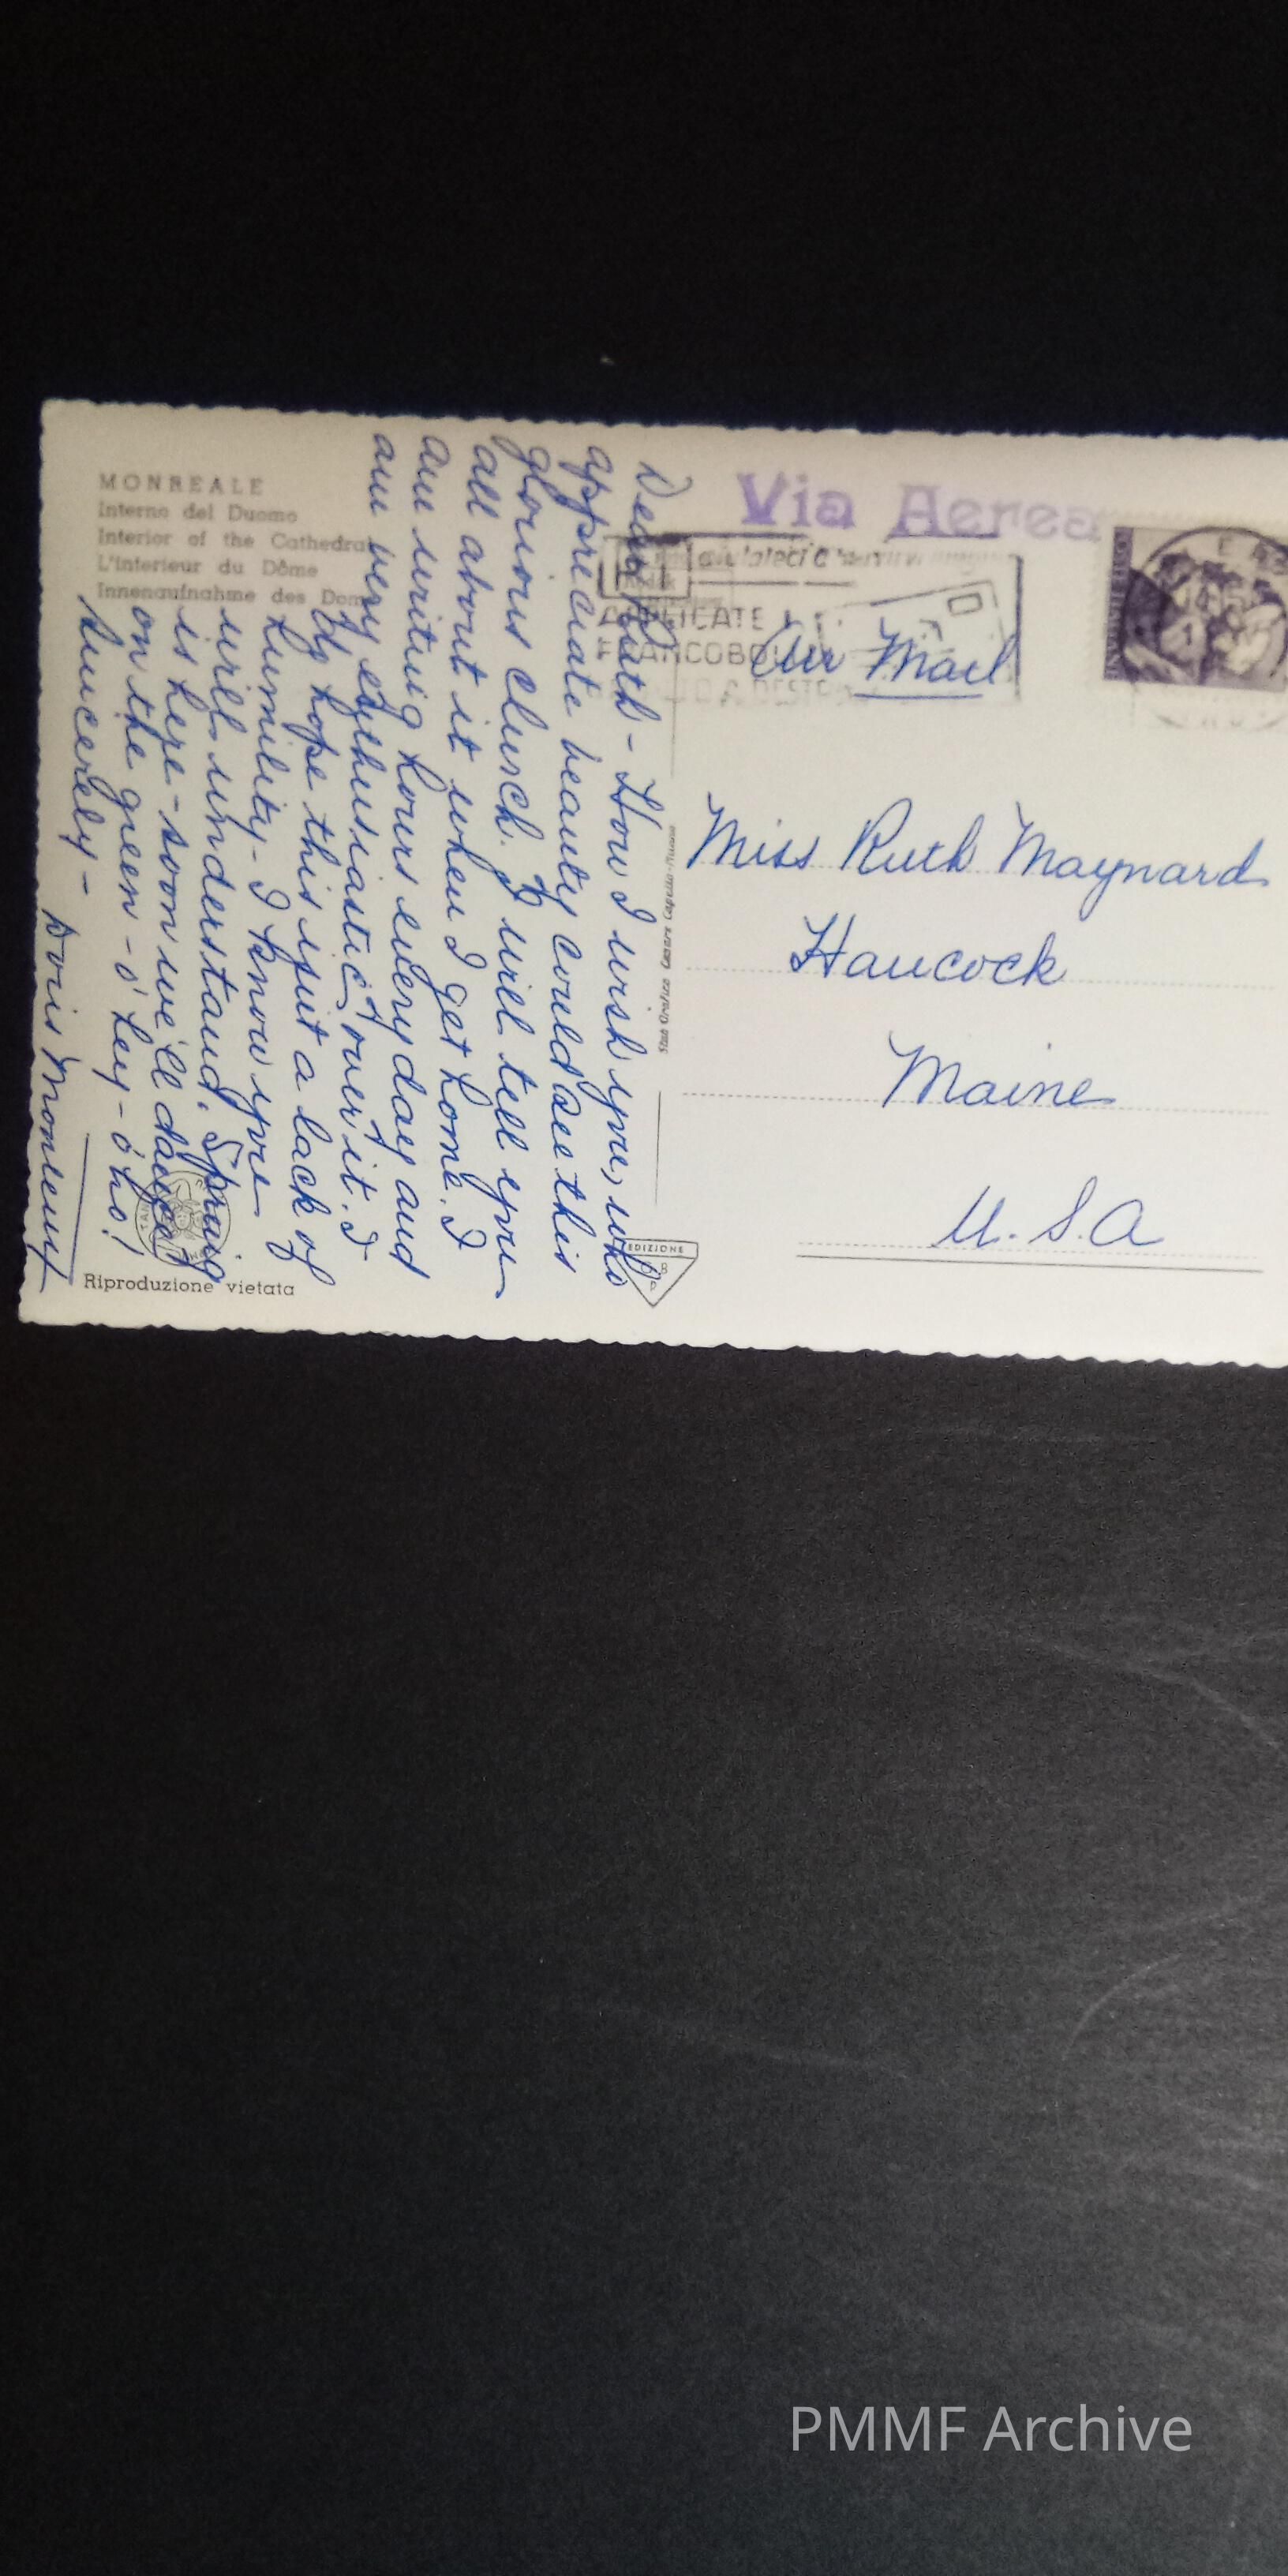 MONREALE
Interno del Duomo
Interior of the Cathedral
L'Interieur du Dôme
Innenaufnahme des Dom
Dear Ruth - How I wish you, who
appreciate beauty could see this
glorious church. I will tell you
all about it when I get home. I
am writing hours every day and
am very enthusiastic over it. I
do hope this isn't a lack of
humility - I know you
will understand. Spring
is here - soon we'll dance
on the green - o' hey - o' ho!
Sincerely -
Doris
Riproduzione vietata
EDIZIONE
Via Aerea
APPLICATE
FRANCOBOLLI
Air Mail
Miss Ruth Maynard
Hancock
Maine
U.S.A
PMMF Archive